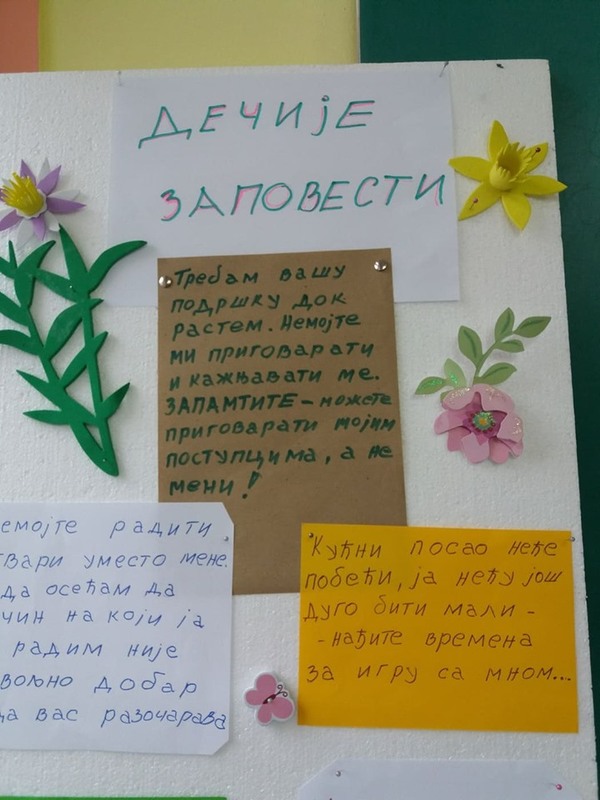 ДЕЧИЈЕ
ЗАПОВЕСТИ
Требам вашу
подршку док
растем. Немојте
ми приговарати
и кажњавати ме.
ЗАПАМТИТЕ – можете
приговарати мојим
поступцима, а не
мени!
емојте радити
твари уместо мене.
да осећам да
чин на који ја
радим није
вољно добар
да вас разочарава
Кућни посао неће
побећи, ја нећу још
дуго бити мали –
– нађите времена
за игру са мном...